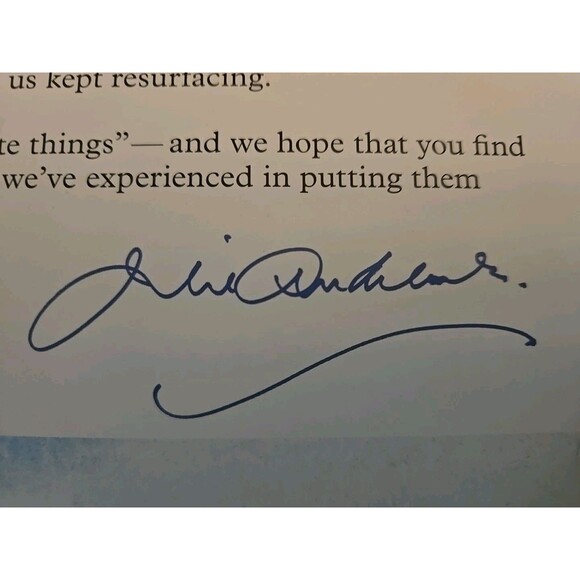 us kept resurfacing.
te things”—and we hope that you find
we’ve experienced in putting them
Julie Andrews.